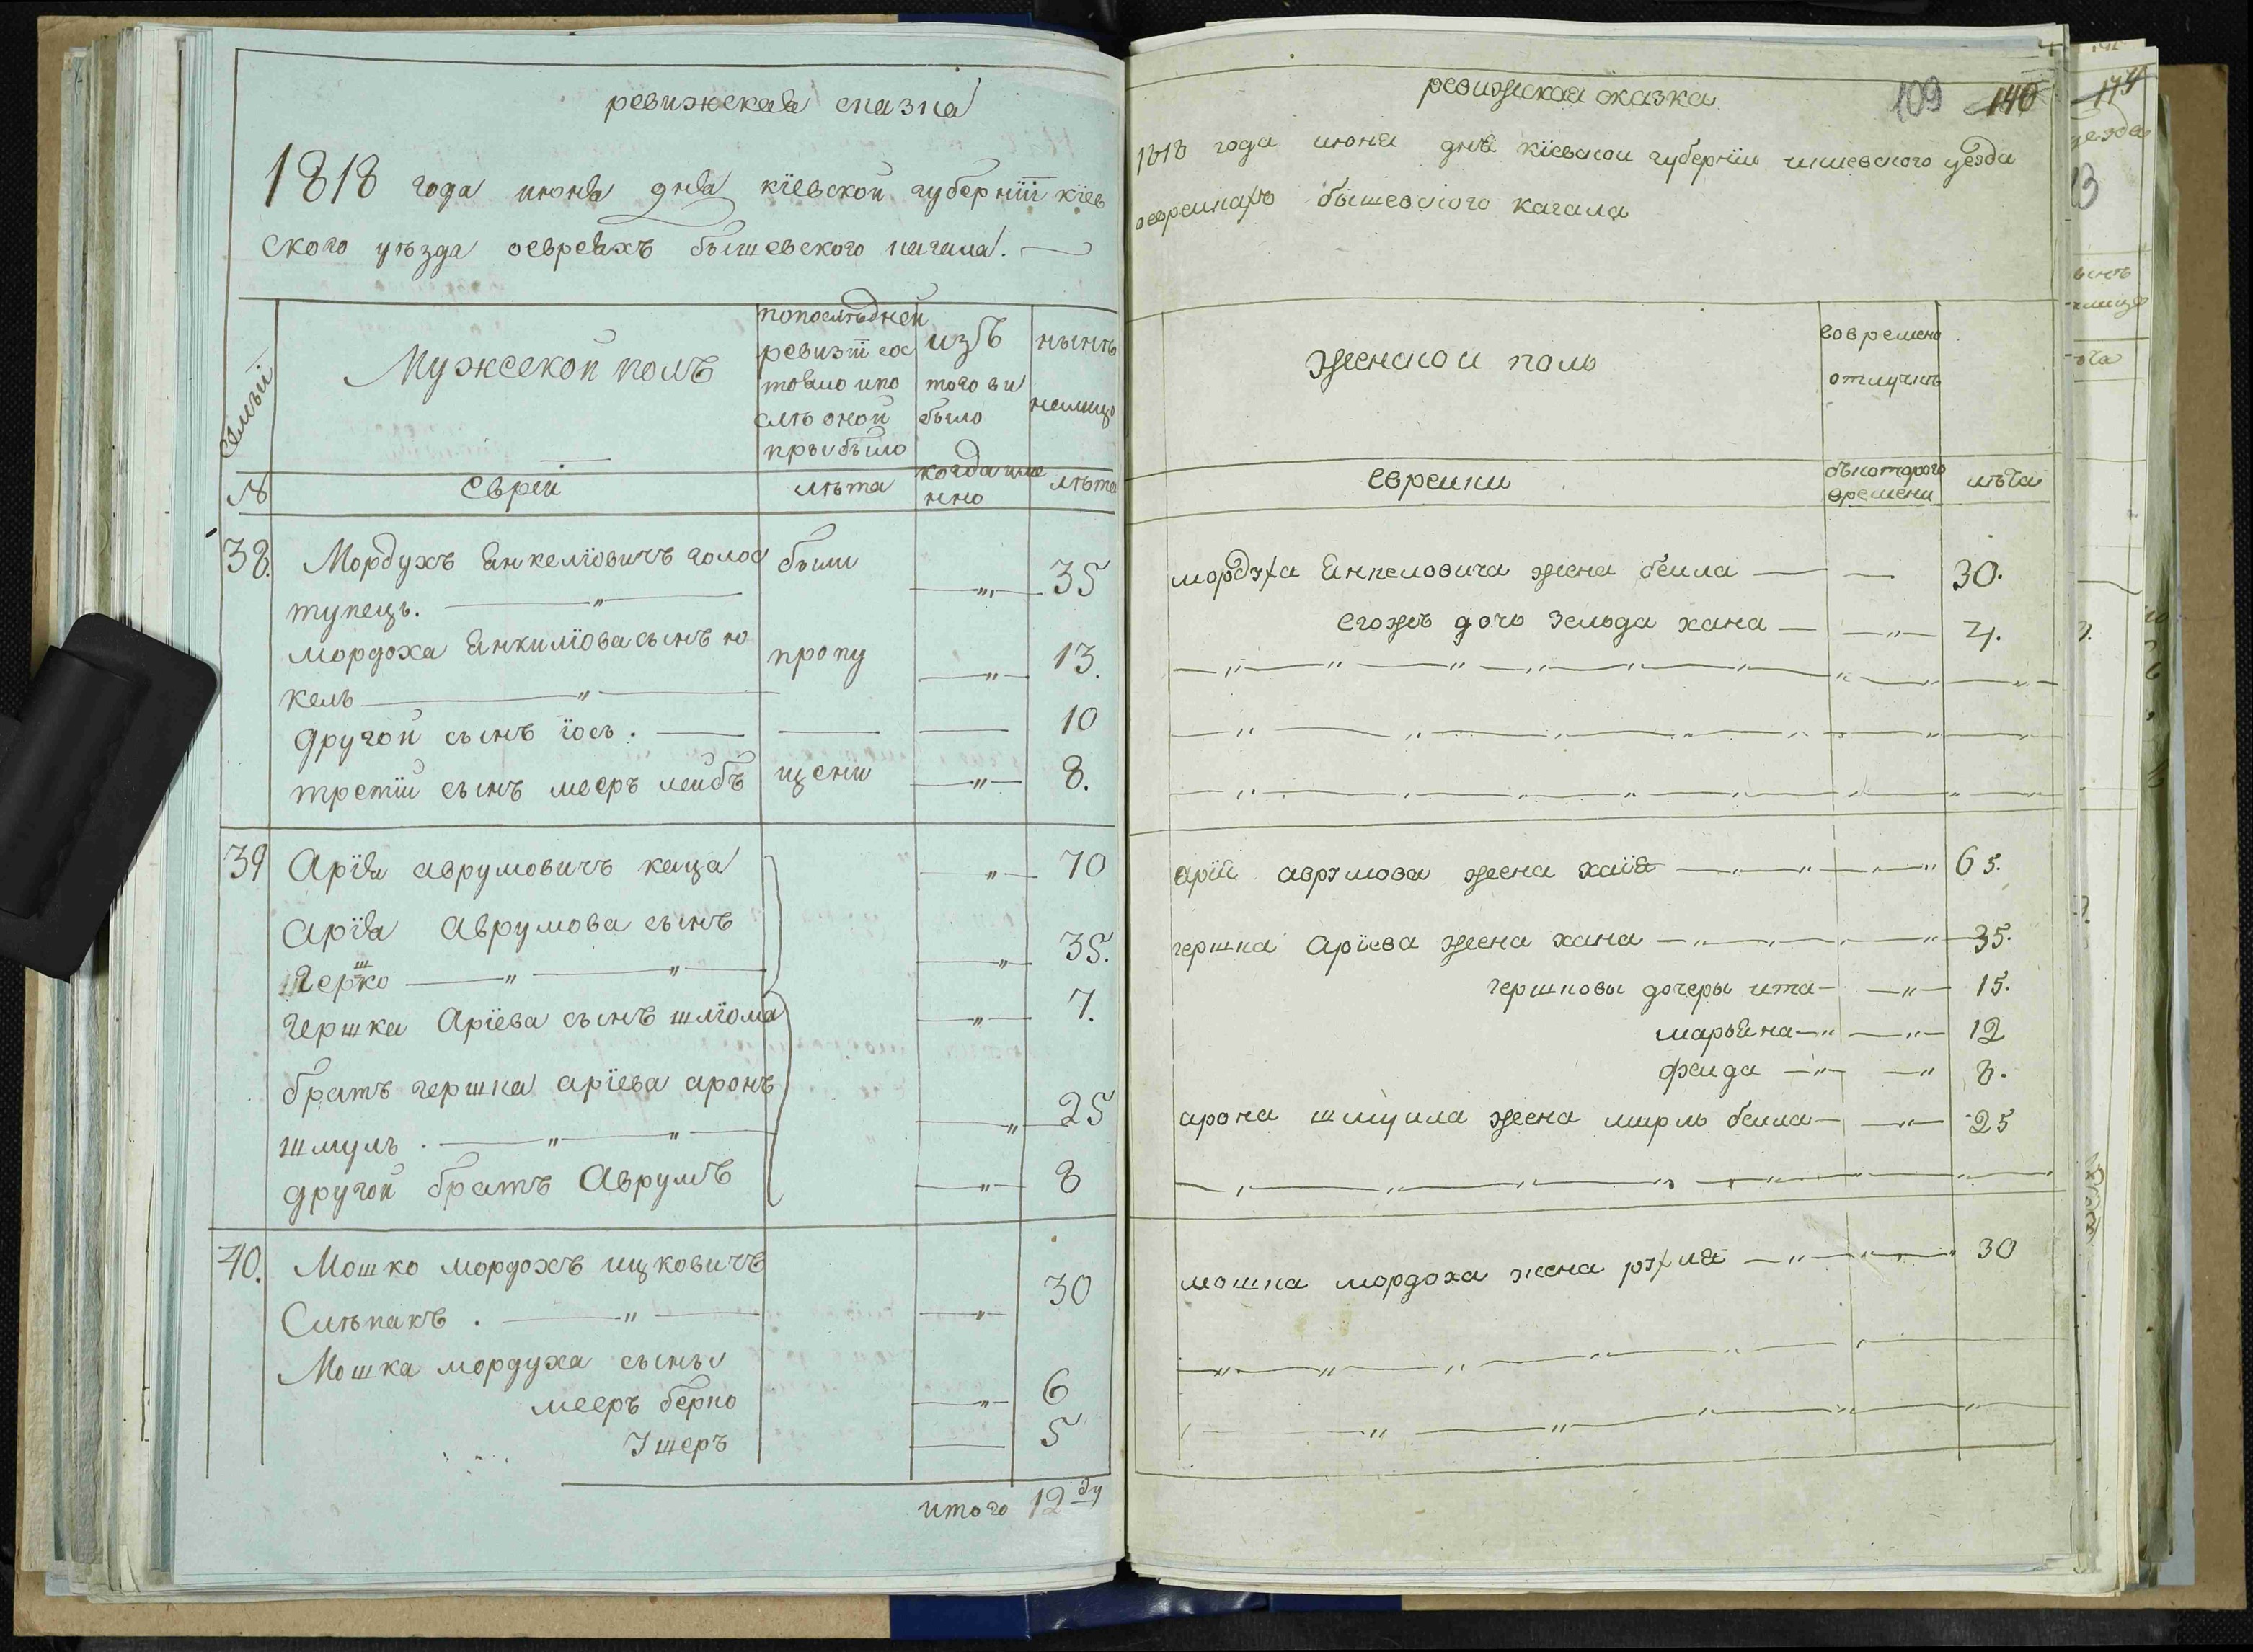 ревижская сказка
1818 года июня дня кїевской губернїи кїев
ского уѣзда оевреяхъ бышевского кагала.
семьи
Мужской полъ
попослѣдней
ревизїи сос
тояло ипо
слѣ оной
прыбыло
изъ
того вы
было
нынѣ
налицо
№
еврей
лѣта
когда име
нно
лѣта
38. Мордухъ Янкелїовичъ голос были „ 35
тупецъ. „
мордоха Янкилїова сынъ ю пропу „ 13.
кель „
другой сынъ їось. 10
третїй сынъ мееръ лейбъ щени „ 8.
39 Арїя аврумовичъ каца „ 70
Арїя Аврумова сынъ
Гершко „ „ „ 35.
гершка Арїева сынъ шлїома „ 7.
братъ гершка арїева аронъ
шмуль. „ „ „ 25
другой братъ Аврумъ „ 8
40. Мошко мордохъ ицковичъ 30
Слѣпакъ. „ „
Мошка мордуха сыны
мееръ берко „ 6
Ушеръ 5
итого 12 ду
ревижская сказка
109 140
1818 года июня дня кїевскои губернїи киевского уезда
оевреикахъ бышевского кагала
женскои полъ
вовремено
отлучкѣ
евреики
съкоторого
времени
лѣта
мордуха Янкеловича жена беила — — 30.
егожъ дочь Зельда хана — „ 4.
арїи аврумова жена хаїя „ „ 65.
гершка Арїева жена хана „ „ 35.
гершковы дочеры ита „ 15.
марьяна „ „ 12
феида „ „ 8.
арона шмуила жена мирль беила „ 25
мошка мордоха жена рухля „ „ 30